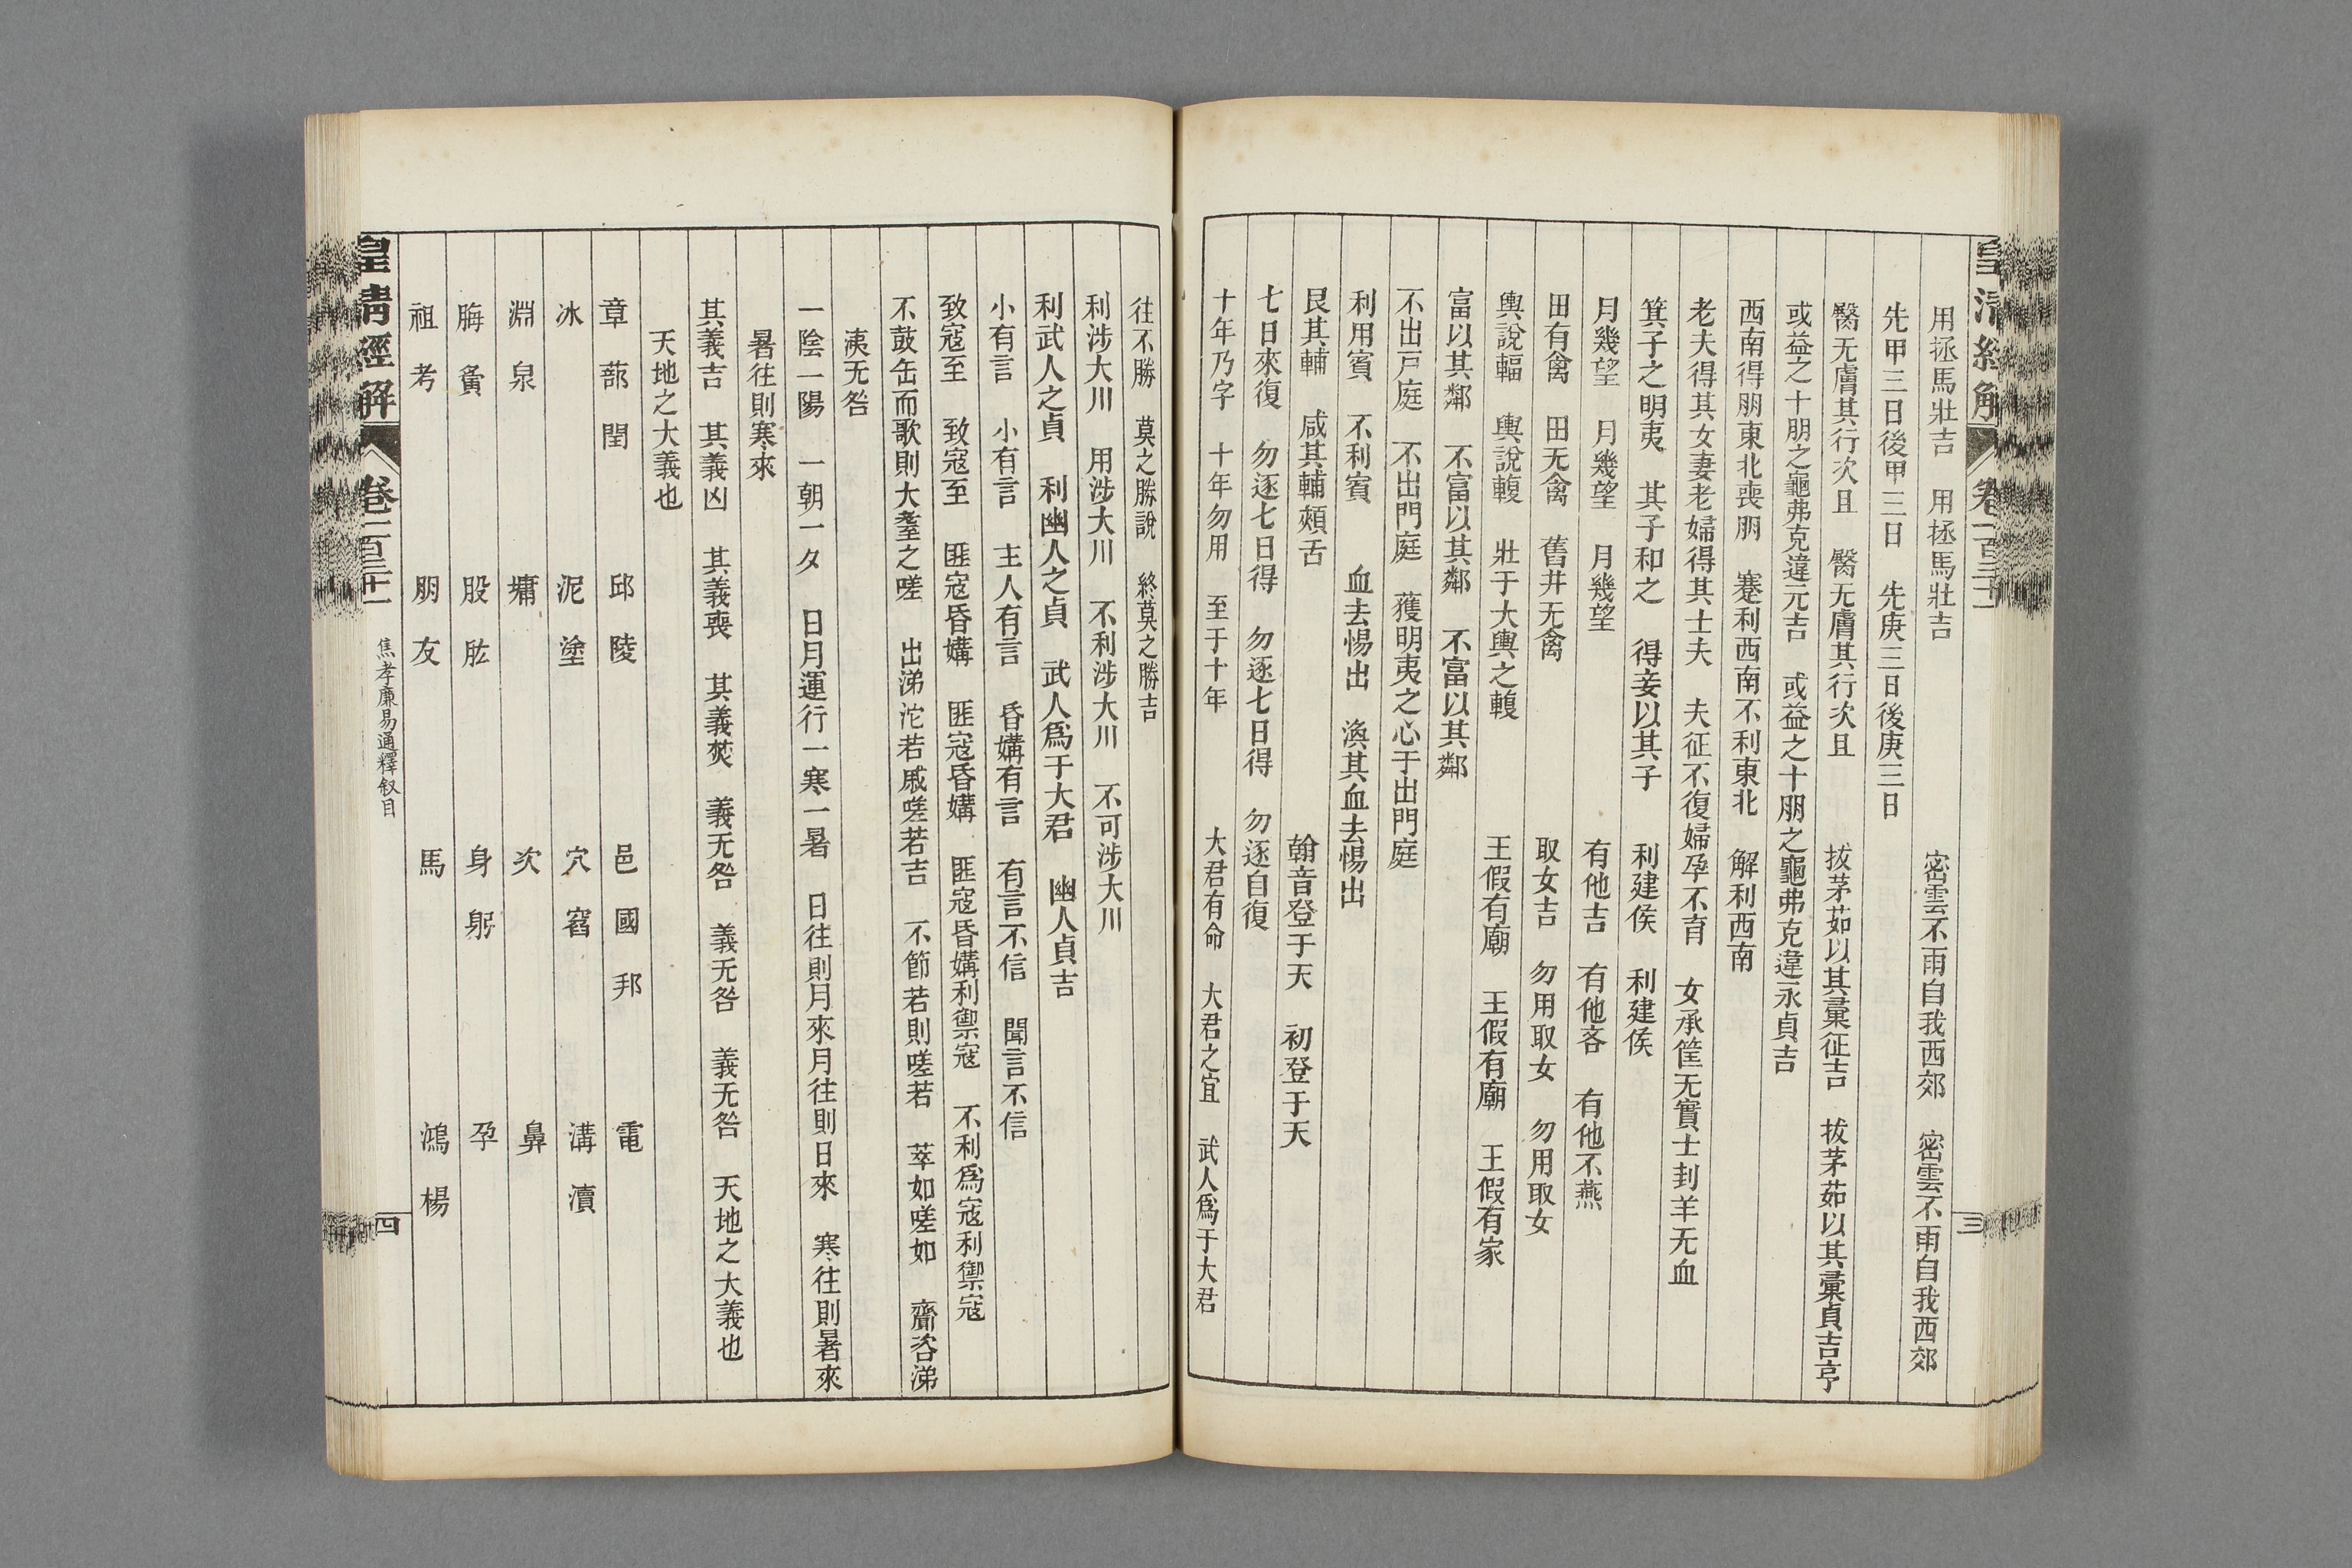 皇清經解
卷一百三十一
三
用拯馬壯吉　用拯馬壯吉　密雲不雨自我西郊　密雲不雨自我西郊
先甲三日後甲三日　先庚三日後庚三日
臀无膚其行次且　臀无膚其行次且　拔茅茹以其彙征吉　拔茅茹以其彙貞吉亨
或益之十朋之龜弗克違元吉　或益之十朋之龜弗克違永貞吉
西南得朋東北喪朋　蹇利西南不利東北　解利西南
老夫得其女妻老婦得其士夫　夫征不復婦孕不育　女承筐无實士刲羊无血
箕子之明夷　其子和之　得妾以其子　利建侯　利建侯
月幾望　月幾望　月幾望　有他吉　有他吝　有他不燕
田有禽　田无禽　舊井无禽　取女吉　勿用取女　勿用取女
輿說輻　輿說輹　壯于大輿之輹　王假有廟　王假有廟　王假有家
富以其鄰　不富以其鄰　不富以其鄰
不出戸庭　不出門庭　獲明夷之心于出門庭
利用賓　不利賓　血去惕出　渙其血去惕出
艮其輔　咸其輔頰舌　翰音登于天　初登于天
七日來復　勿逐七日得　勿逐七日得　勿逐自復
十年乃字　十年勿用　至于十年　大君有命　大君之宜　武人爲于大君
往不勝　莫之勝說　終莫之勝吉
利涉大川　用涉大川　不利涉大川　不可涉大川
利武人之貞　利幽人之貞　武人爲于大君　幽人貞吉
小有言　小有言　主人有言　昏媾有言　有言不信　聞言不信
致寇至　致寇至　匪寇昏媾　匪寇昏媾　匪寇昏媾利禦寇　不利爲寇利禦寇
不鼓缶而歌則大耋之嗟　出涕沱若戚嗟若吉　不節若則嗟若　萃如嗟如　齎咨涕
洟无咎
一陰一陽　一朝一夕　日月運行一寒一暑　日往則月來月往則日來　寒往則暑來
暑往則寒來
其義吉　其義凶　其義喪　其義焚　義无咎　義无咎　義无咎　天地之大義也
天地之大義也
章　蔀　閏　邱　陵　邑　國　邦　電
冰　泥　塗　穴　窞　溝　瀆
淵　泉　墉　次　鼻
脢　夤　股　肱　身　躬　孕
祖　考　朋　友　馬　鴻　楊
皇清經解
卷一百三十一
焦孝廉易通釋敍目
四